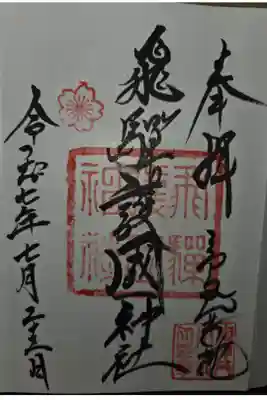 奉拝
飛騨護國神社
令和七年七月二十三日
飛騨護國神社